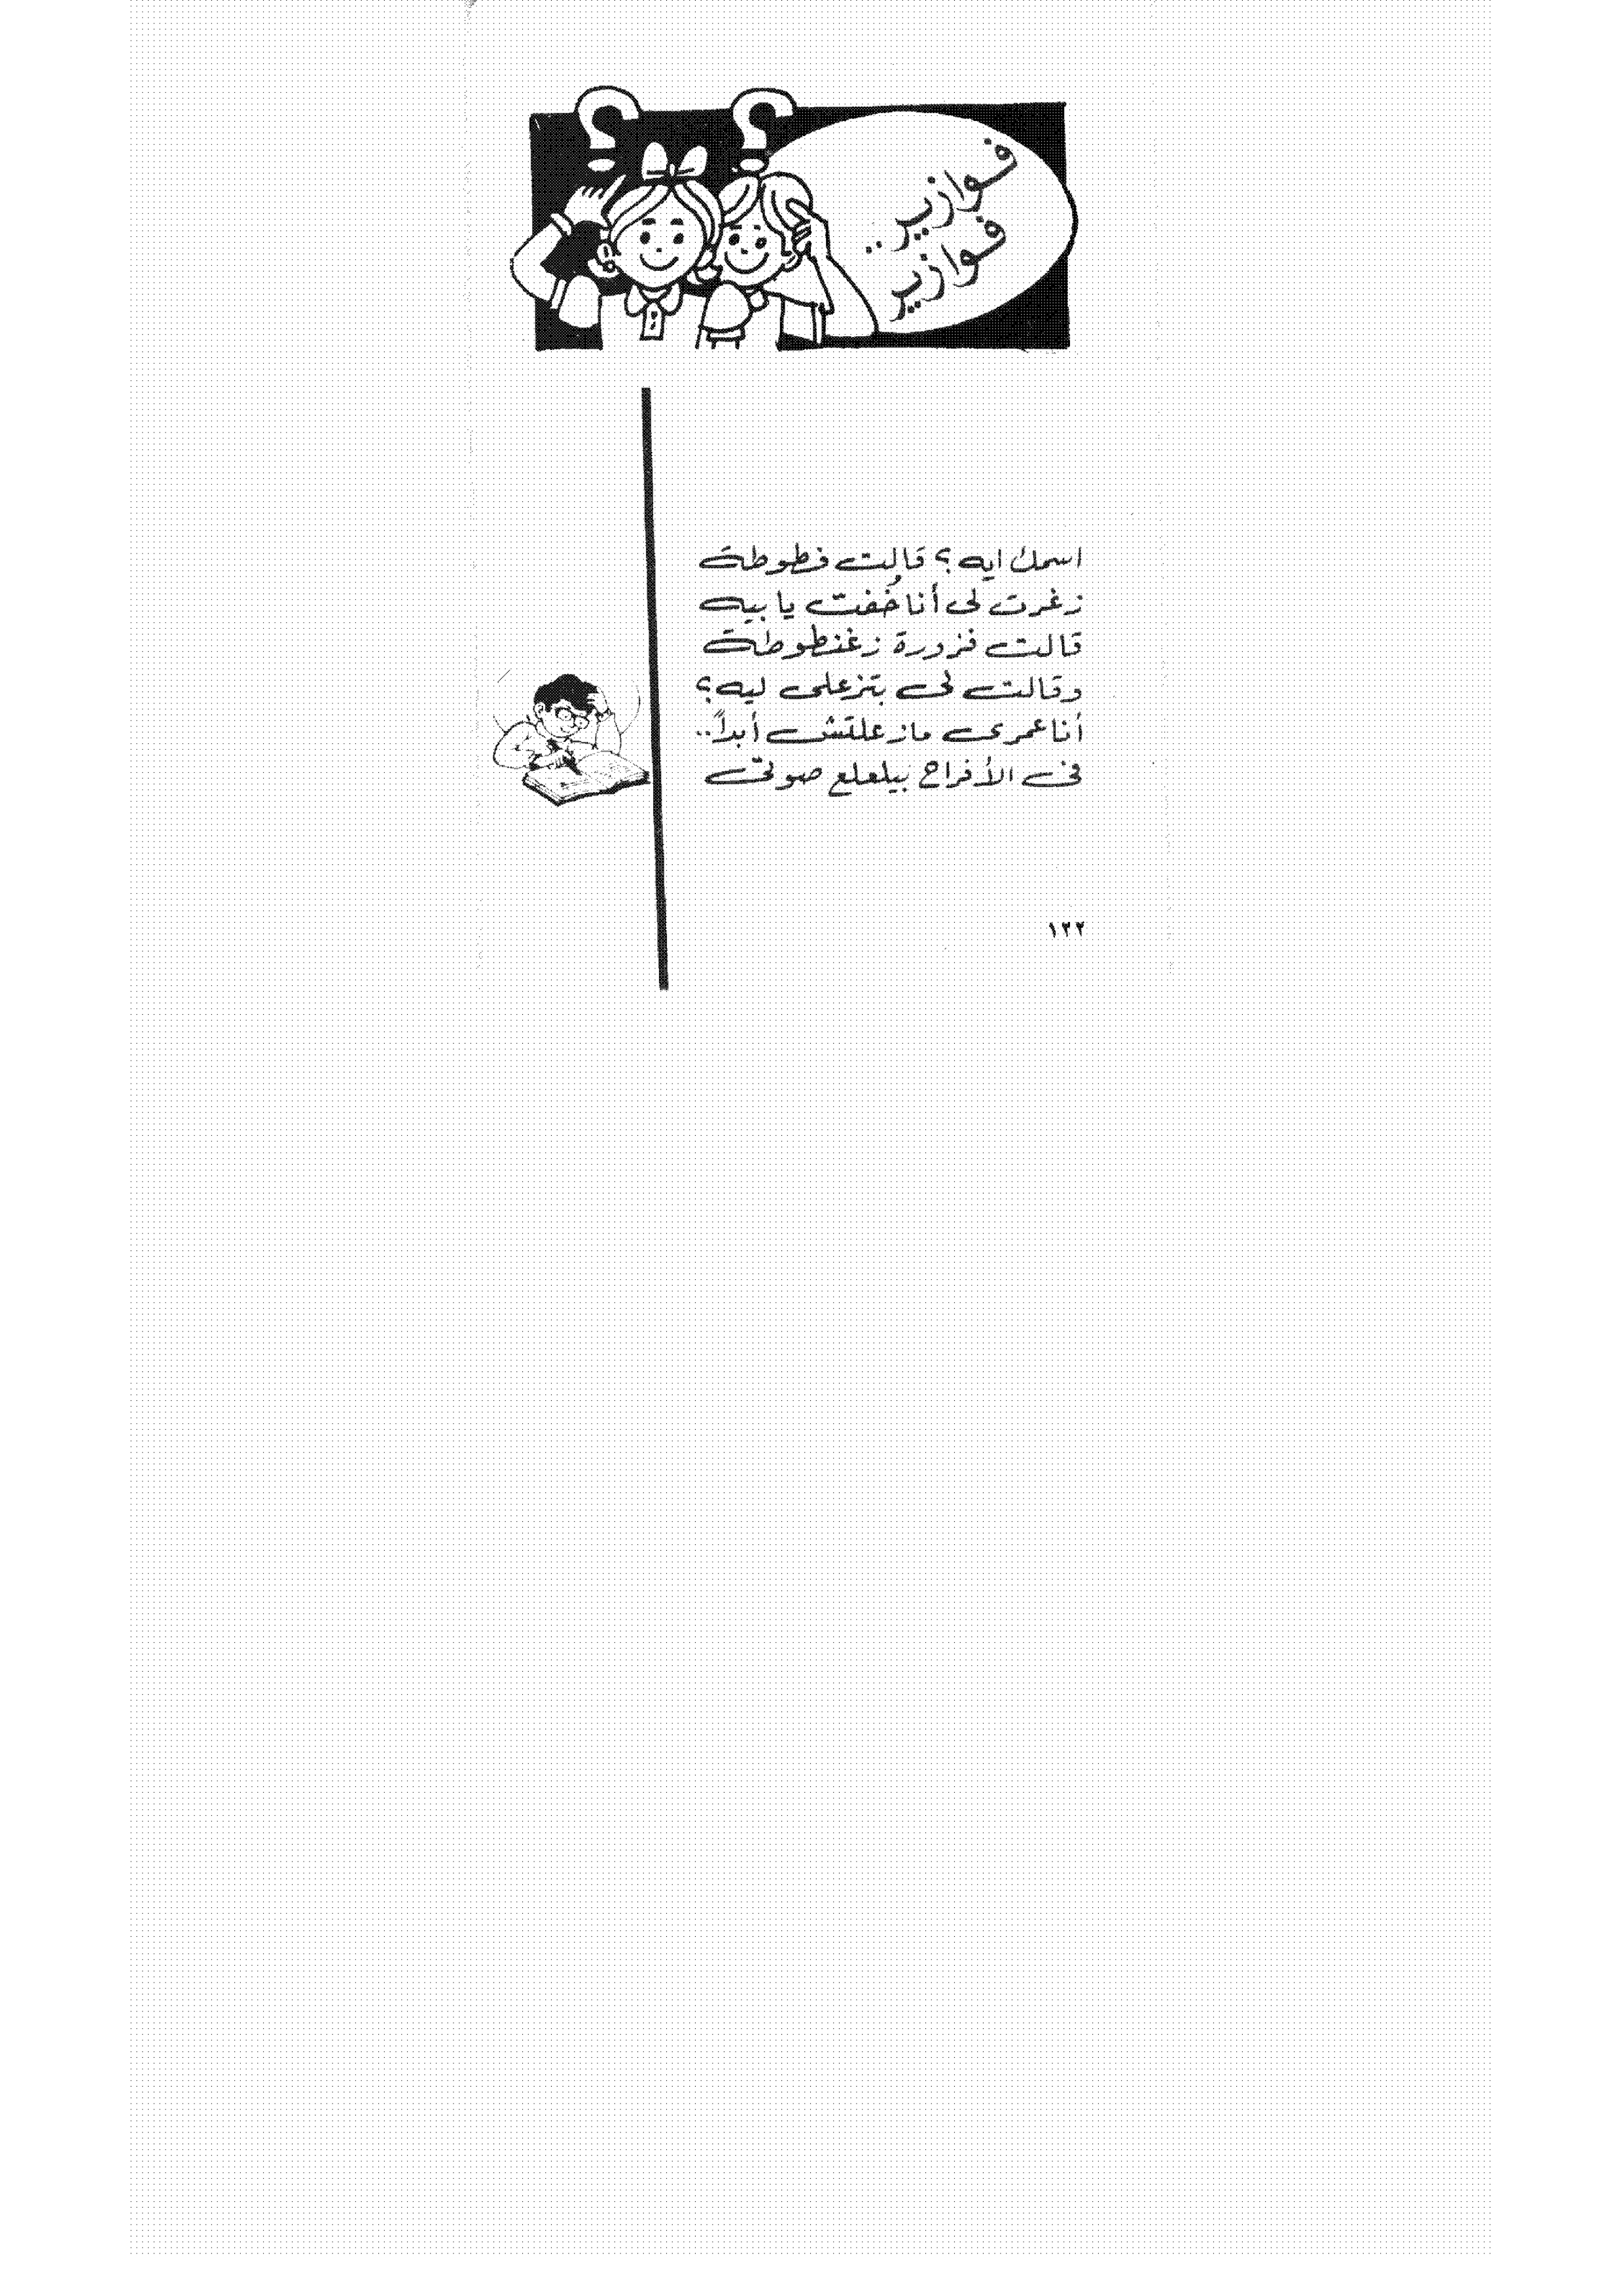 فوازير..
فوازير
اسمك ايه؟ قالت فطوطة
زغرت لى أنا خُفت يا بيه
قالت فزورة زغنطوطة
وقالت لى بتزعلى ليه؟
أنا عمرى مازعلتش أبداً..
فى الأفراح بيلعلع صوتى
١٢٢